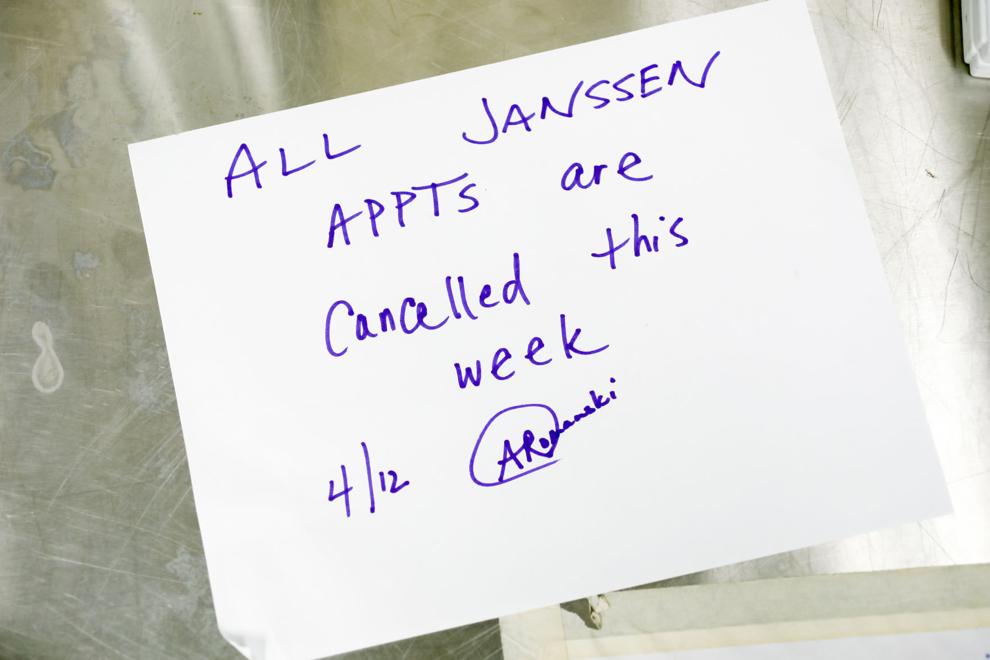 ALL JANSSEN
APPTs are
Cancelled this
week
4/12 ARomanski